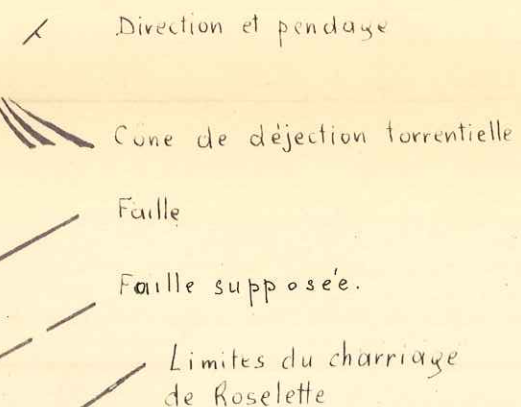 Direction et pendage
Cône de déjection torrentielle
Faille
Faille supposée.
Limites du charriage
de Roselette